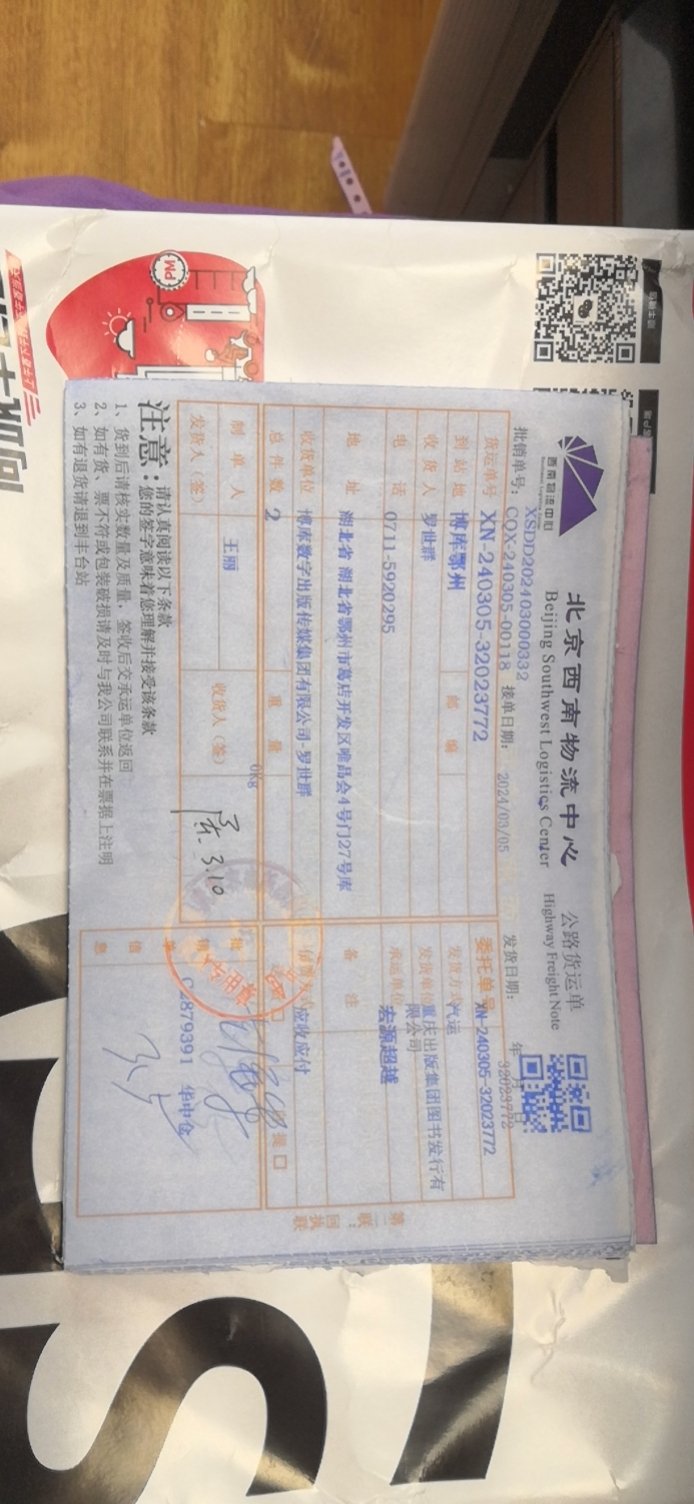 西南物流中心
Southwest Logistics Center
北京西南物流中心
公路货运单
Beijing Southwest Logistics Center
Highway Freight Note
XSDD202403000332
批销单号: CQX-240305-00118 接单日期: 2024/03/05
发货日期: 年 月 日
32023772
货运单号 XN-240305-32023772
委托单号 XN-240305-32023772
到站地 博库鄂州 邮编
发货方式 汽运
收货人 罗世群
发货单位 重庆出版集团图书发行有限公司
电话 0711-5920295
承运单位 宏源超越
地址 湖北省 湖北省鄂州市葛店开发区唯品会4号门27号库
备注
收货单位 博库数字出版传媒集团有限公司-罗世群
付费方式 应收应付
总件数 2 重量 0Kg
提 □
制单人 王丽
发货人(签) 收货人(签)
3.10
批销单信息
C2879391 华中仓
第二联:回执联
注意: 请认真阅读以下条款
您的签字意味着您理解并接受该条款
1、货到后请核实数量及质量，签收后交承运单位返回
2、如有货、票不符或包装破损请及时与我公司联系并在票据上注明
3、如有退货请退到丰台站
PM